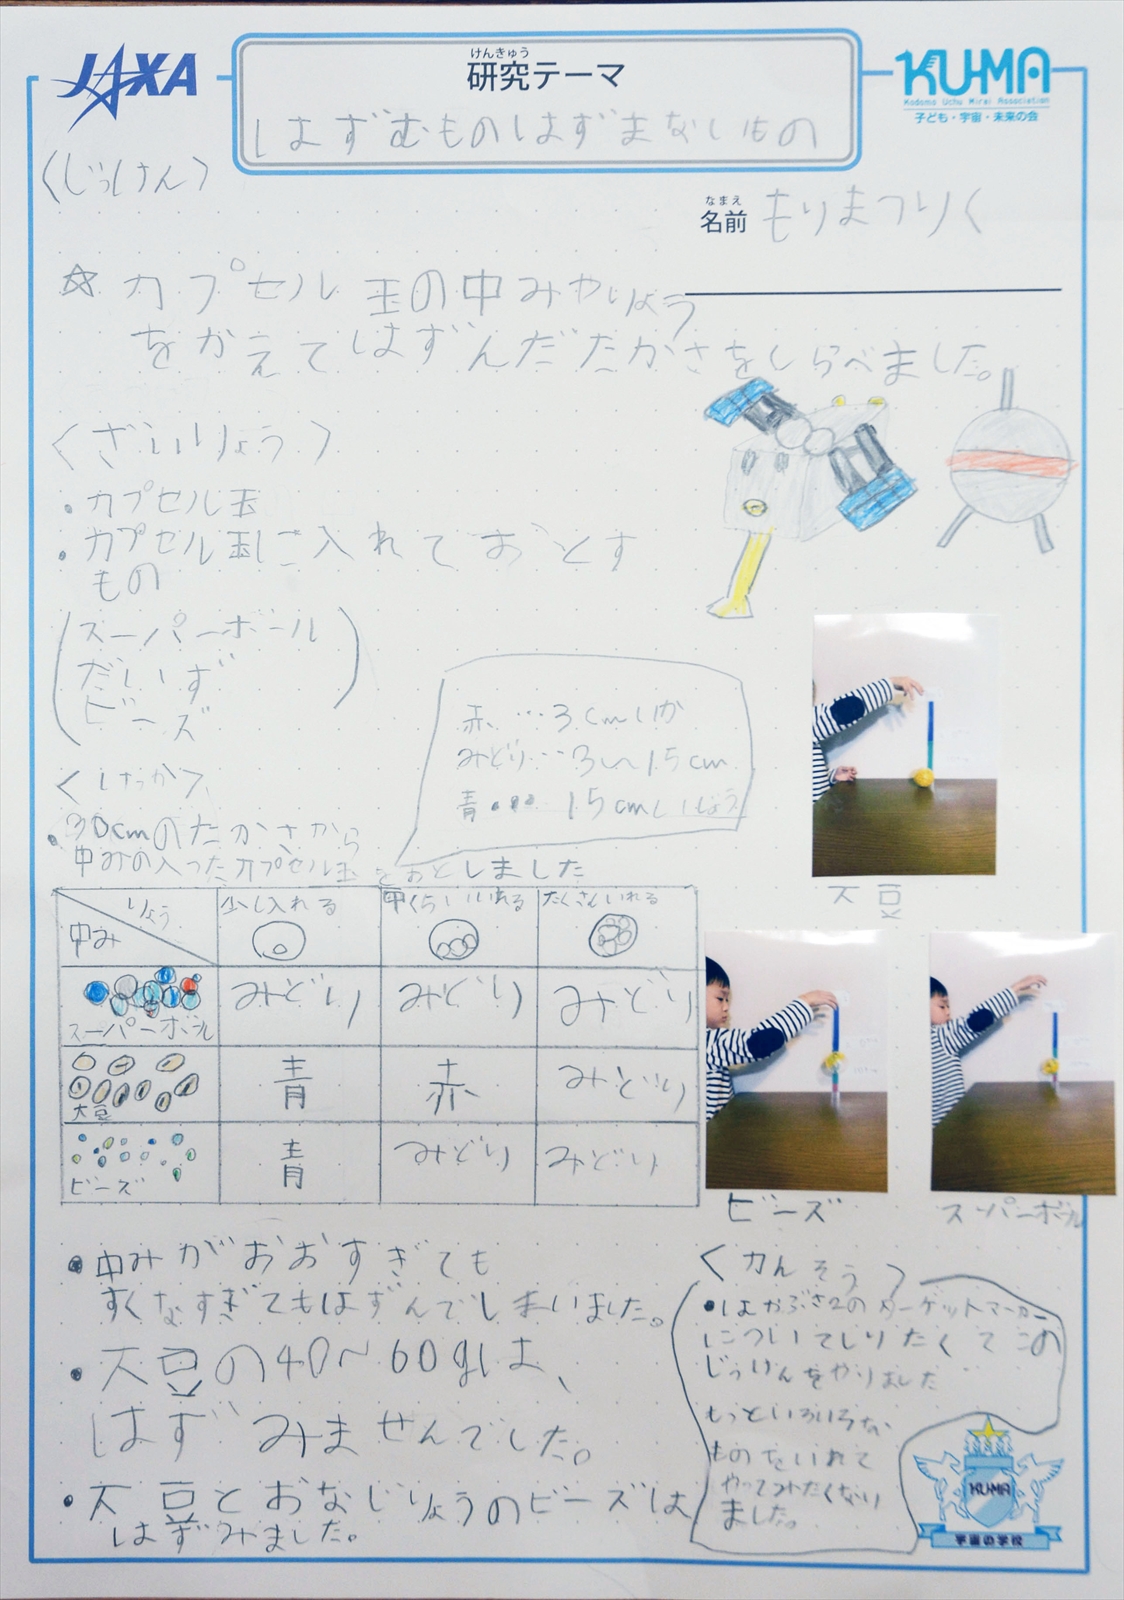 JAXA
けんきゅう
研究テーマ
はずむものはずまないもの
KU-MA
Kodomo Uchu Mirai Association
子ども・宇宙・未来の会
〈じっけん〉
なまえ
名前 もりまつりく
☆カプセル玉の中みやりょう
をかえてはずんだたかさをしらべました。
〈ざいりょう〉
・カプセル玉
・カプセル玉に入れておとす
もの
スーパーボール
だいず
ビーズ
赤…3cmいか
みどり…3〜15cm
青…15cmいじょう
〈けっか〉
・30cmのたかさから
中みの入ったカプセル玉をおとしました
大豆
りょう
中み
少し入れる
中くらいいれる
たくさんいれる
スーパーボール
みどり みどり みどり
大豆
青 赤 みどり
ビーズ
青 みどり みどり
ビーズ
スーパーボール
・中みがおおすぎても
すくなすぎてもはずんでしまいました。
・大豆の40〜60gは、
はずみませんでした。
・大豆とおなじりょうのビーズは
はずみました。
〈かんそう〉
・はやぶさ2のターゲットマーカー
についてしりたくてこの
じっけんをやりました
もっといろいろな
ものをいれて
やってみたくなり
ました。
KU-MA
宇宙の学校